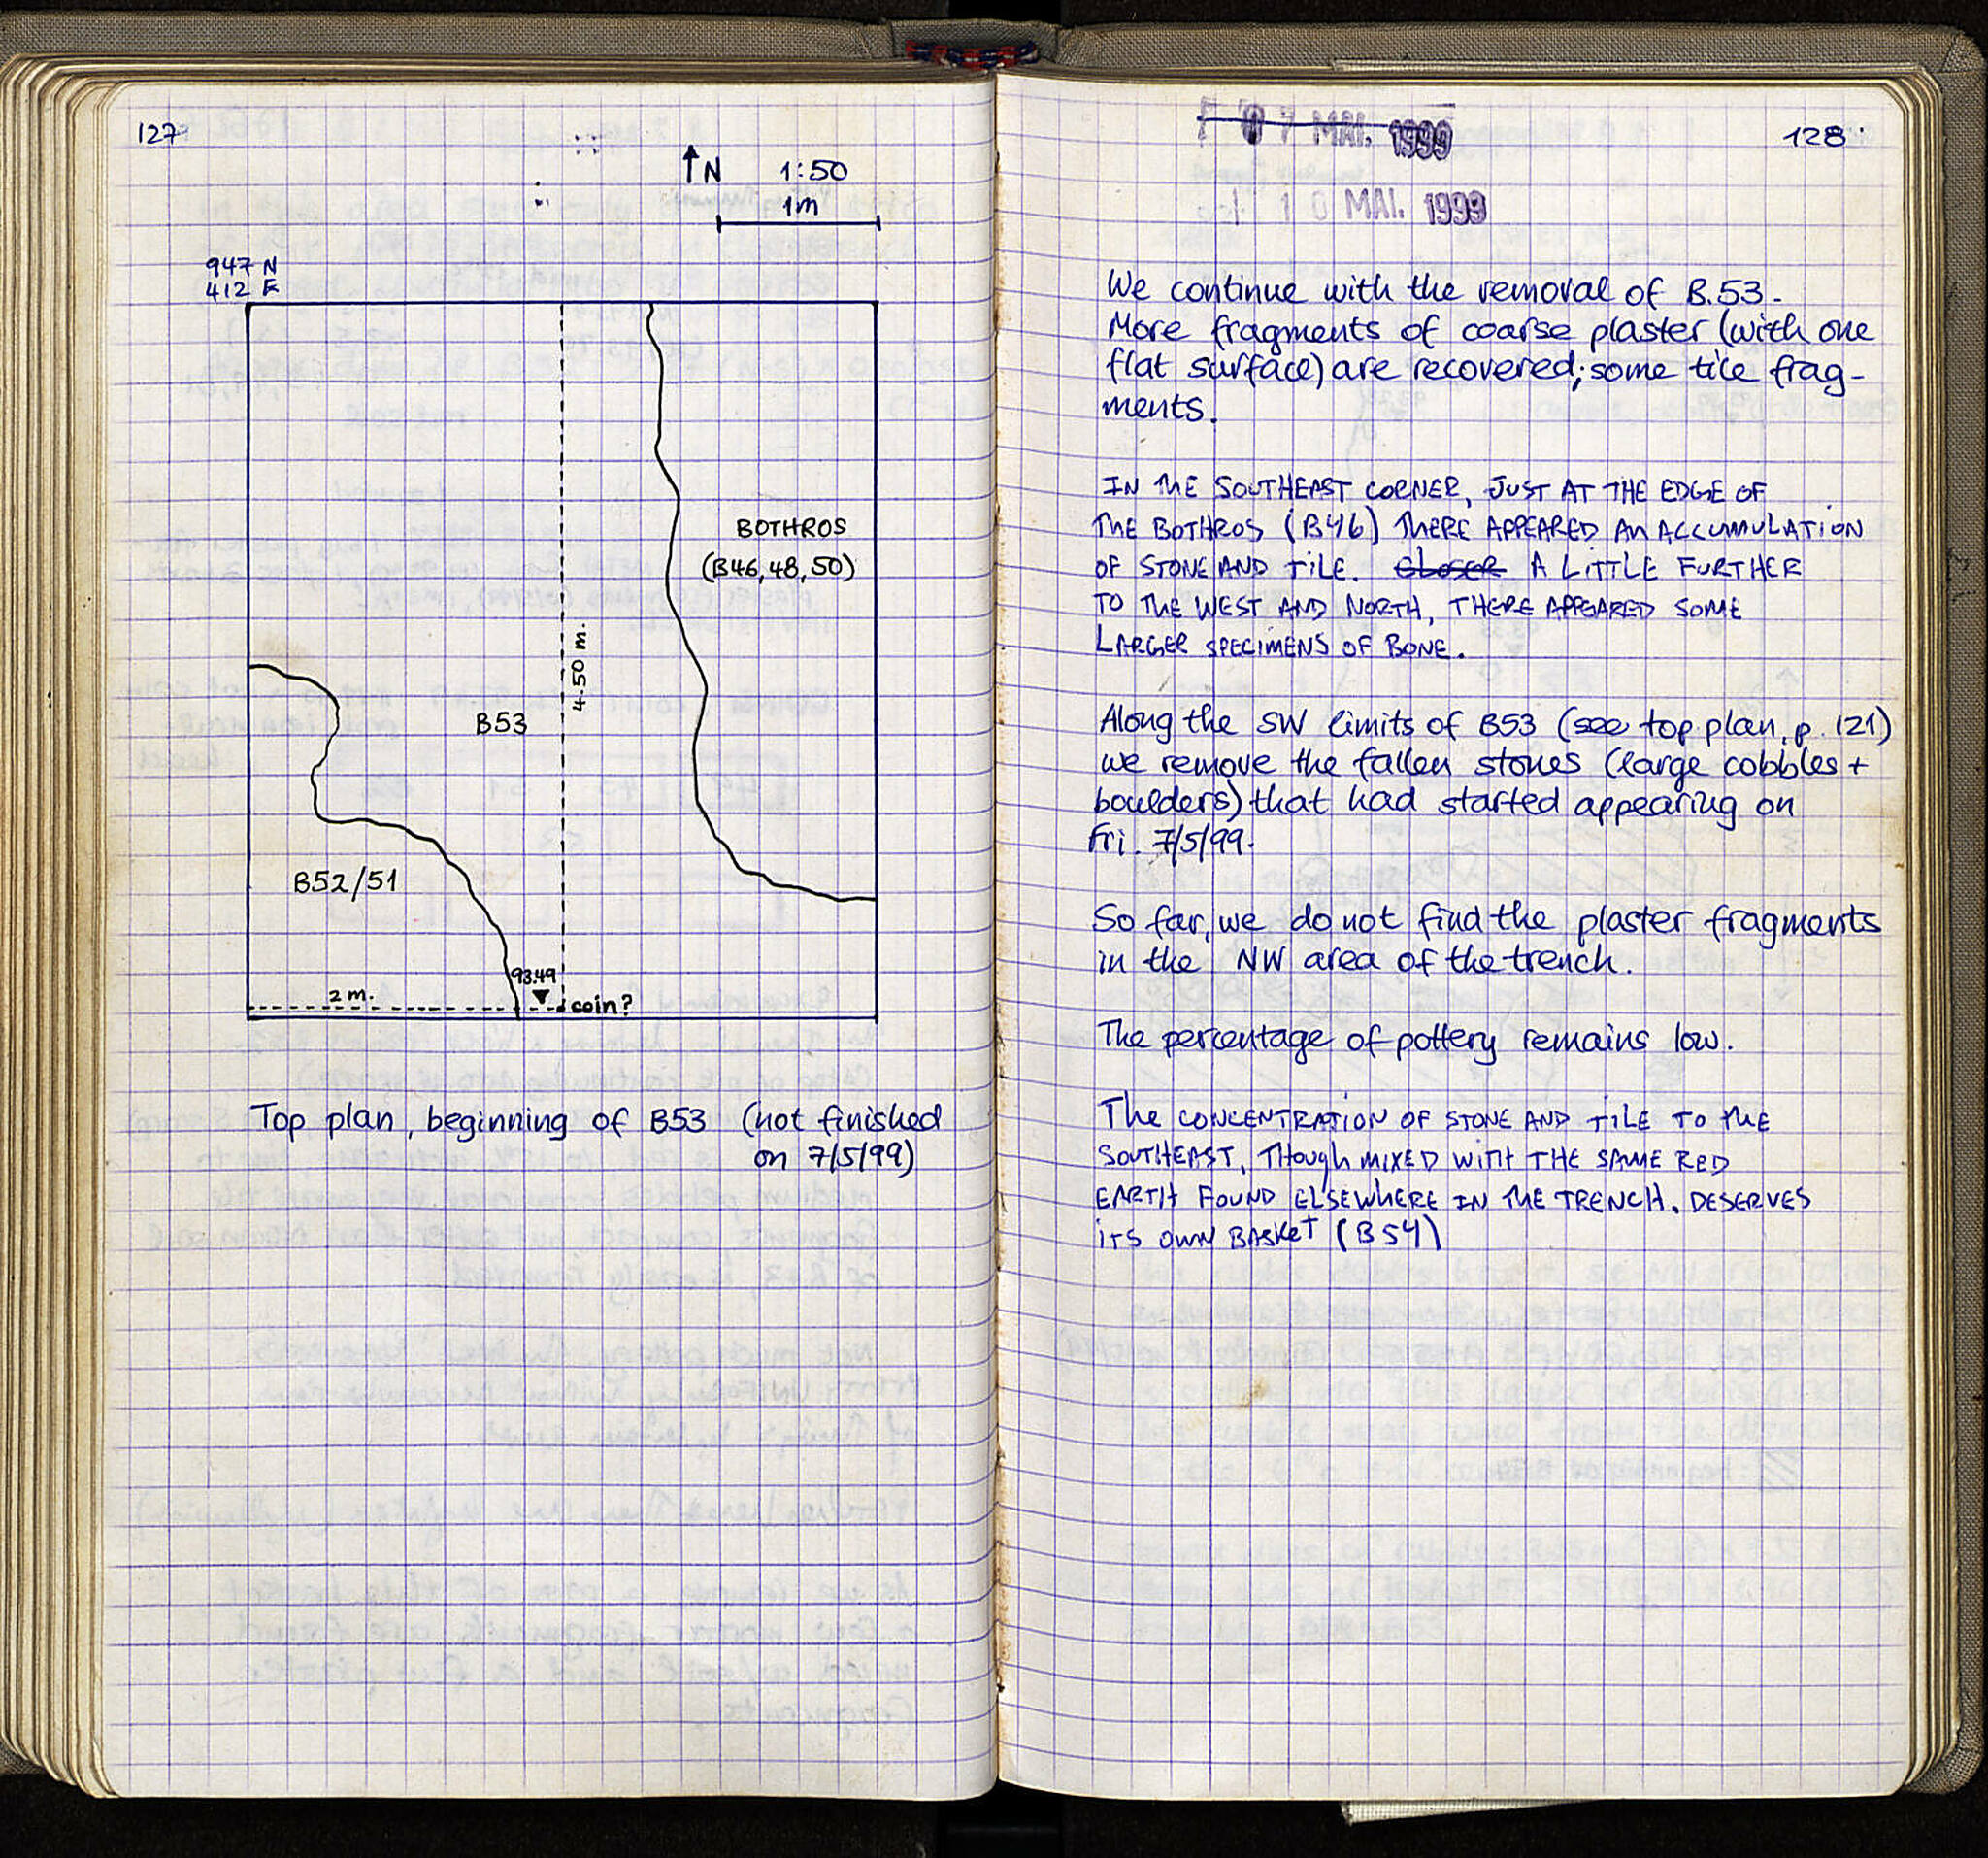 127
↑N 1:50
1m
947 N
412 E
BOTHROS
(B46, 48, 50)
4.50 m.
B53
B52/51
93.49
2 m.
coin?
Top plan, beginning of B53 (not finished
on 7/5/99)
07 MAI. 1999
128
10 MAI. 1999
We continue with the removal of B.53.
More fragments of coarse plaster (with one
flat surface) are recovered; some tile frag-
ments.
IN THE SOUTHEAST CORNER, JUST AT THE EDGE OF
THE BOTHROS (B46) THERE APPEARED AN ACCUMULATION
OF STONE AND TILE. CLOSER A LITTLE FURTHER
TO THE WEST AND NORTH, THERE APPEARED SOME
LARGER SPECIMENS OF BONE.
Along the SW limits of B53 (see top plan, p. 121)
we remove the fallen stones (large cobbles +
boulders) that had started appearing on
Fri. 7/5/99.
So far, we do not find the plaster fragments
in the NW area of the trench.
The percentage of pottery remains low.
THE CONCENTRATION OF STONE AND TILE TO THE
SOUTHEAST, THOUGH MIXED WITH THE SAME RED
EARTH FOUND ELSEWHERE IN THE TRENCH, DESERVES
ITS OWN BASKET (B54)